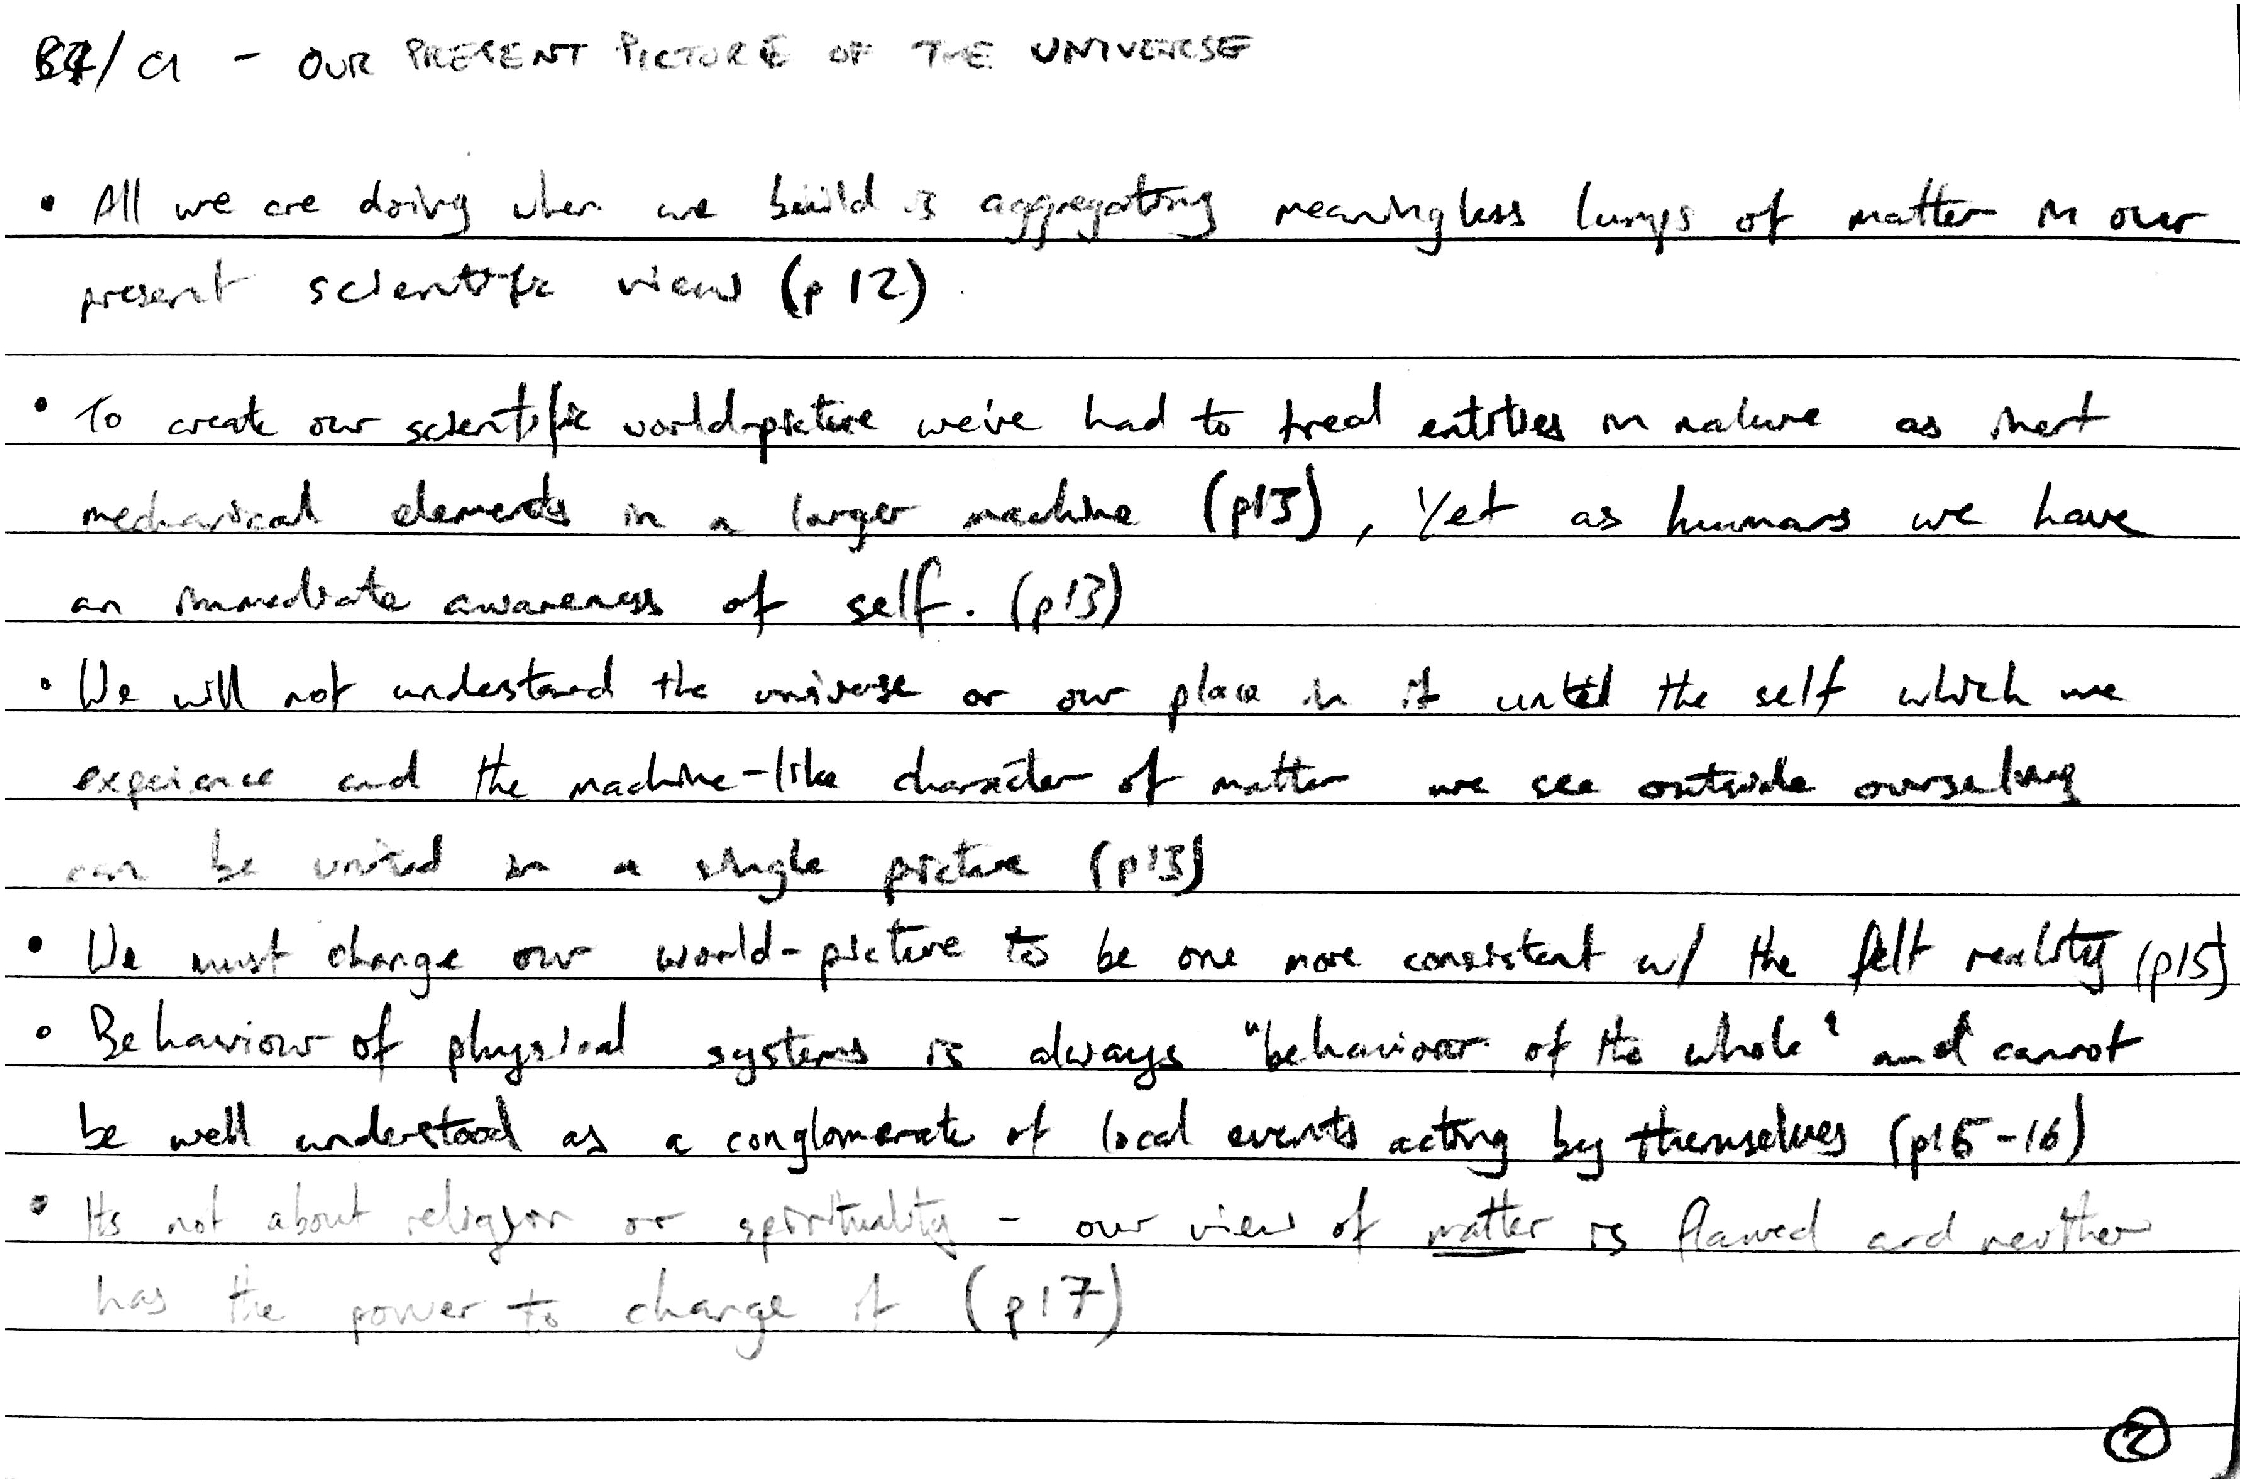 B4/C1 - OUR PRESENT PICTURE OF THE UNIVERSE
• All we are doing when we build is aggregating meaningless lumps of matter in our
present scientific view (p12).
• To create our scientific world-picture we've had to treat entities in nature as inert
mechanical elements in a larger machine (p13), Yet as humans we have
an immediate awareness of self. (p13)
• We will not understand the universe or our place in it until the self which we
experience and the machine-like character of matter we see outside ourselves
can be united in a single picture (p13)
• We must change our world-picture to be one more consistent w/ the felt reality (p15)
• Behaviour of physical systems is always "behaviour of the whole" and cannot
be well understood as a conglomerate of local events acting by themselves (p15-16)
• Its not about religion or spirituality - our view of matter is flawed and neither
has the power to change it (p17)
2